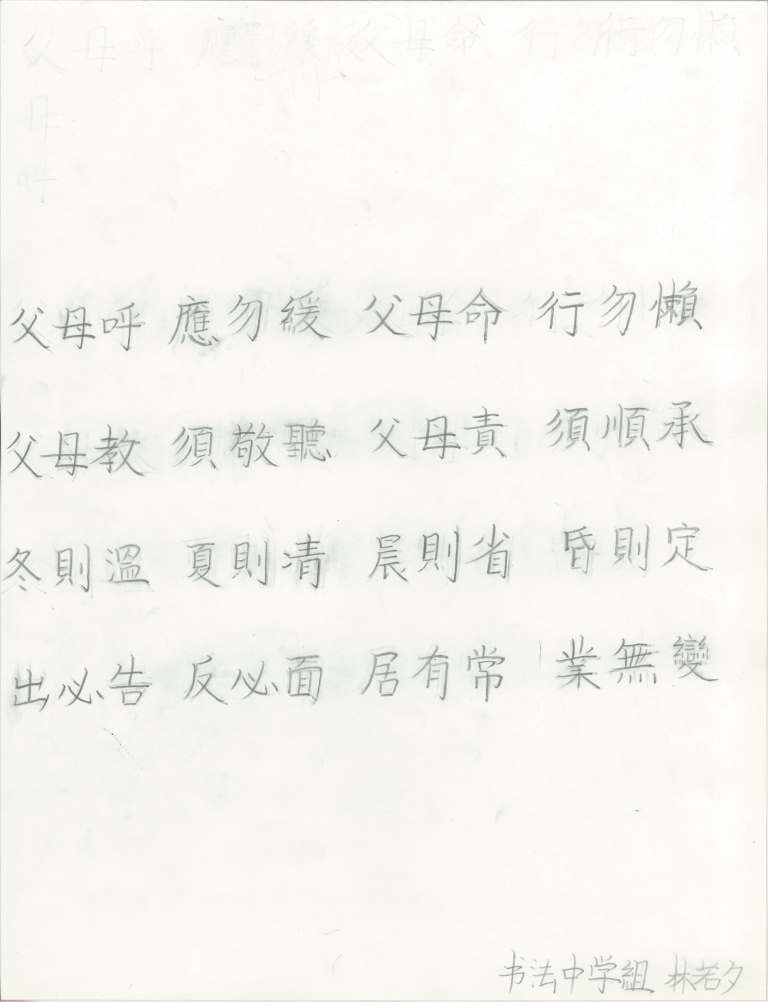 父母呼 應勿緩 父母命 行勿行勿懶
母
呼
父母呼 應勿緩 父母命 行勿懶
父母教 須敬聽 父母責 須順承
冬則溫 夏則凊 晨則省 昏則定
出必告 反必面 居有常 業無變
书法中学組 林若夕